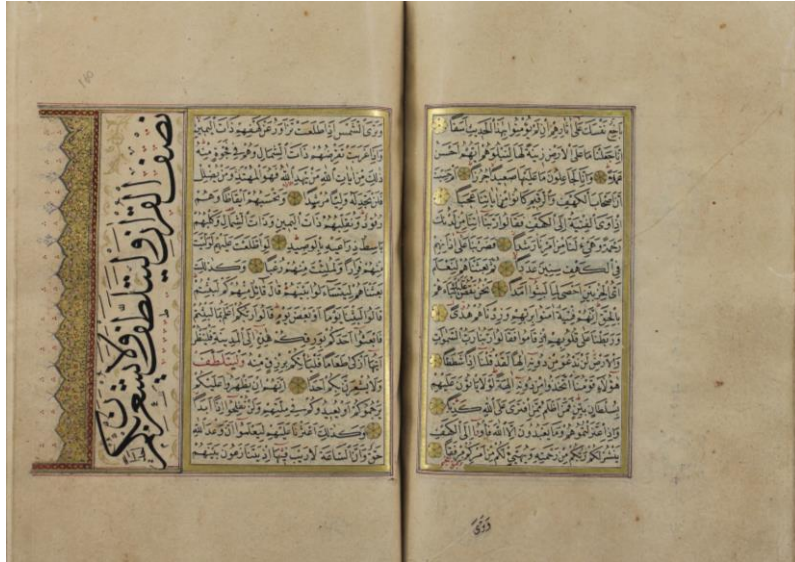 بَاخِعٌ نَفْسَكَ عَلَى اٰثَارِهِمْ اِنْ لَمْ يُؤْمِنُوا بِهٰذَا الْحَدِيثِ اَسَفًا
اِنَّا جَعَلْنَا مَا عَلَى الْاَرْضِ زِينَةً لَهَا لِنَبْلُوَهُمْ اَيُّهُمْ اَحْسَنُ
عَمَلًا وَاِنَّا لَجَاعِلُونَ مَا عَلَيْهَا صَعِيدًا جُرُزًا اَمْ حَسِبْتَ
اَنَّ اَصْحَابَ الْكَهْفِ وَالرَّقِيمِ كَانُوا مِنْ اٰيَاتِنَا عَجَبًا
اِذْ اَوَى الْفِتْيَةُ اِلَى الْكَهْفِ فَقَالُوا رَبَّنَا اٰتِنَا مِنْ لَدُنْكَ
رَحْمَةً وَهَيِّئْ لَنَا مِنْ اَمْرِنَا رَشَدًا فَضَرَبْنَا عَلَى اٰذَانِهِمْ
فِي الْكَهْفِ سِنِينَ عَدَدًا ثُمَّ بَعَثْنَاهُمْ لِنَعْلَمَ
اَيُّ الْحِزْبَيْنِ اَحْصٰى لِمَا لَبِثُوا اَمَدًا نَحْنُ نَقُصُّ عَلَيْكَ نَبَاَهُمْ
بِالْحَقِّ اِنَّهُمْ فِتْيَةٌ اٰمَنُوا بِرَبِّهِمْ وَزِدْنَاهُمْ هُدًى
وَرَبَطْنَا عَلَى قُلُوبِهِمْ اِذْ قَامُوا فَقَالُوا رَبُّنَا رَبُّ السَّمٰوَاتِ
وَالْاَرْضِ لَنْ نَدْعُوَ مِنْ دُونِهِ اِلٰهًا لَقَدْ قُلْنَا اِذًا شَطَطًا
هٰؤُلَاءِ قَوْمُنَا اتَّخَذُوا مِنْ دُونِهِ اٰلِهَةً لَوْلَا يَاْتُونَ عَلَيْهِمْ
بِسُلْطَانٍ بَيِّنٍ فَمَنْ اَظْلَمُ مِمَّنِ افْتَرٰى عَلَى اللّٰهِ كَذِبًا
وَاِذِ اعْتَزَلْتُمُوهُمْ وَمَا يَعْبُدُونَ اِلَّا اللّٰهَ فَاْوُوا اِلَى الْكَهْفِ
يَنْشُرْ لَكُمْ رَبُّكُمْ مِنْ رَحْمَتِهِ وَيُهَيِّئْ لَكُمْ مِنْ اَمْرِكُمْ مِرْفَقًا
وَتَرَى
وَتَرَى الشَّمْسَ اِذَا طَلَعَتْ تَزَاوَرُ عَنْ كَهْفِهِمْ ذَاتَ الْيَمِينِ
وَاِذَا غَرَبَتْ تَقْرِضُهُمْ ذَاتَ الشِّمَالِ وَهُمْ فِي فَجْوَةٍ مِنْهُ
ذٰلِكَ مِنْ اٰيَاتِ اللّٰهِ مَنْ يَهْدِ اللّٰهُ فَهُوَ الْمُهْتَدِ وَمَنْ يُضْلِلْ
فَلَنْ تَجِدَ لَهُ وَلِيًّا مُرْشِدًا وَتَحْسَبُهُمْ اَيْقَاظًا وَهُمْ
رُقُودٌ وَنُقَلِّبُهُمْ ذَاتَ الْيَمِينِ وَذَاتَ الشِّمَالِ وَكَلْبُهُمْ
بَاسِطٌ ذِرَاعَيْهِ بِالْوَصِيدِ لَوِ اطَّلَعْتَ عَلَيْهِمْ لَوَلَّيْتَ
مِنْهُمْ فِرَارًا وَلَمُلِئْتَ مِنْهُمْ رُعْبًا وَكَذٰلِكَ
بَعَثْنَاهُمْ لِيَتَسَاءَلُوا بَيْنَهُمْ قَالَ قَائِلٌ مِنْهُمْ كَمْ لَبِثْتُمْ
قَالُوا لَبِثْنَا يَوْمًا اَوْ بَعْضَ يَوْمٍ قَالُوا رَبُّكُمْ اَعْلَمُ بِمَا لَبِثْتُمْ
فَابْعَثُوا اَحَدَكُمْ بِوَرِقِكُمْ هٰذِهِ اِلَى الْمَدِينَةِ فَلْيَنْظُرْ
اَيُّهَا اَزْكٰى طَعَامًا فَلْيَاْتِكُمْ بِرِزْقٍ مِنْهُ وَلْيَتَلَطَّفْ
وَلَا يُشْعِرَنَّ بِكُمْ اَحَدًا اِنَّهُمْ اِنْ يَظْهَرُوا عَلَيْكُمْ
يَرْجُمُوكُمْ اَوْ يُعِيدُوكُمْ فِي مِلَّتِهِمْ وَلَنْ تُفْلِحُوا اِذًا اَبَدًا
وَكَذٰلِكَ اَعْثَرْنَا عَلَيْهِمْ لِيَعْلَمُوا اَنَّ وَعْدَ اللّٰهِ
حَقٌّ وَاَنَّ السَّاعَةَ لَا رَيْبَ فِيهَا اِذْ يَتَنَازَعُونَ بَيْنَهُمْ
نصف القران وليتلطف ولا يشعرن بكم
140